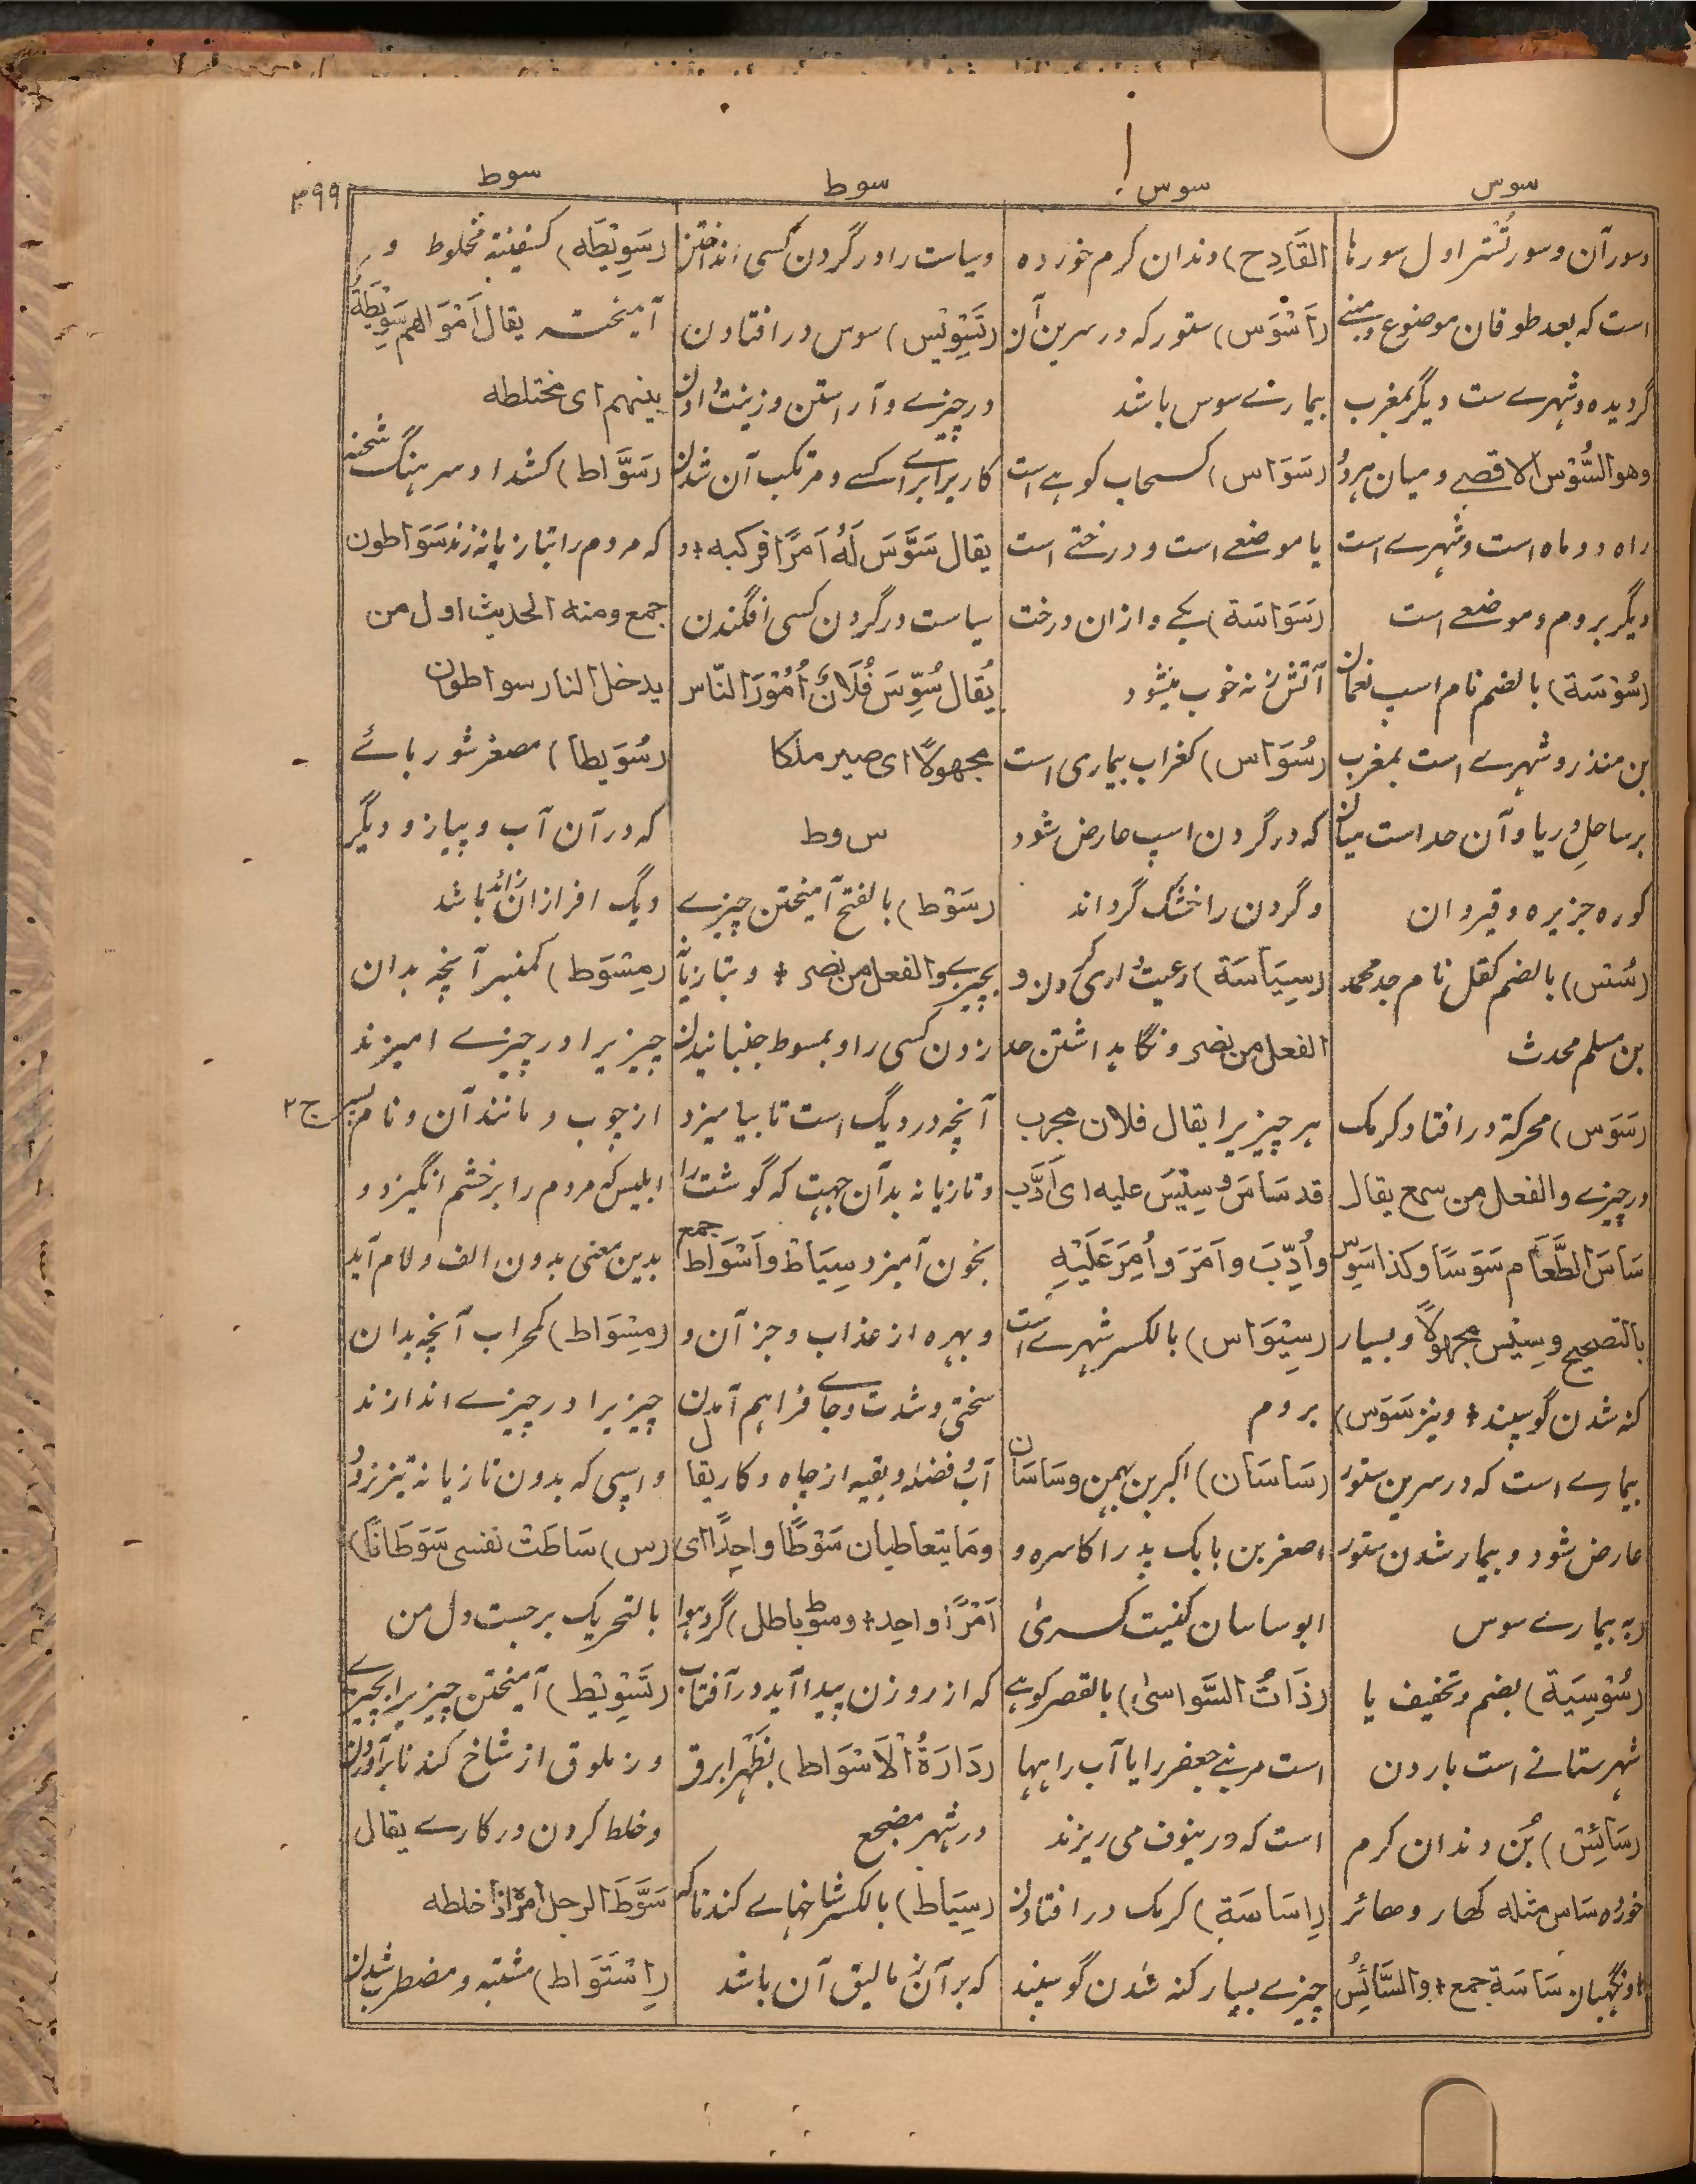 سوس
سوس
سوط
سوط
۳۹۹
وسور آن و سور تُشتر اول سورها
است که بعد طوفان موضوع و مبنے
گردیده و شهرے ست دیگر بمغرب
وهو السُّوْس الاقصے و میان هردو
راه دو ماه است و شهرے است
دیگر بروم و موضعے است
(سُوْسَة) بالضم نام اسپ نعمان
بن منذر و شهرے است بمغرب
برساحلِ دریا و آن حد است میان
کوره جزیره و قیروان
(سُس) بالضم کقل نام جد محمد
بن مسلم محدث
(سَوَس) محرکة در افتاد کرمک
در چیزے والفعل من سمع یقال
سَاسَ الطَّعَام سَوَسًا وکذا سَوِس
بالتصحیح و سِیْسَ مجهولاً و بسیار
کنه شدن گوسپند + و نیز سَوَس)
بیمارے است که در سرین ستور
عارض شود و بیمار شدن ستور
به بیمارے سوس
(سُوْسِیَة) بضم و تخفیف یا
شهرستانے است باردن
(سَائِس) بُن دندان کرم
خورده سَاس مثله کهار و هائر
و نگهبان سَاسَة جمع + والسَّائِسُ
القَادِح) دندان کرم خورده
(اَسْوَس) ستور که در سرین آن
بیمارے سوس باشد
(سَوَاس) کسحاب کوهے است
یا موضعے است و درختے است
(سَوَاسَة) یکے و ازان درخت
آتش زنه خوب میشود
(سُوَاس) کغراب بیماری است
که در گردن اسپ عارض شود
و گردن را خشک گرداند
(سِیَاسَة) رعیت داری کردن و
الفعل من نصر و نگاهداشتن حد
هر چیزیرا یقال فلان مجرب
قد سَاسَ و سِیْسَ علیه ای اَدَّبَ
واُدِّبَ و اَمَرَ واُمِرَ عَلَیْهِ
(سِیْوَاس) بالکسر شهرے است
بروم
(سَاسَان) اکبر بن بهمن و سَاسَان
اصغر بن بابک پدر اکاسره و
ابو ساسان کنیت کسریٰ
(ذَاتُ السَّوَاسیٰ) بالقصر کوهے
است مر بنی جعفر را یا آب راهها
است که در ینوف می ریزند
(اِسَاسَة) کرمک در افتادن
چیزے بسیار کنه شدن گوسپند
و سیاست را در گردن کسی انداختن
(تَسْوِیْس) سوس در افتادن
در چیزے و آراستن و زینت دادن
کاریرا برای کسے و مرتکب آن شدن
یقال سَوَّسَ لَهُ اَمرًا فرکبه + و
سیاست در گردن کسی افگندن
یُقال سُوِّسَ فُلَانٌ اُمُوْرَ النَّاس
مجهولاً ای صیر ملکا
س وط
(سَوْط) بالفتح آمیختن چیزے
بچیزے والفعل من نصر + و بتازیانه
زدن کسی را و بمسوط جنبانیدن
آنچه در دیگ است تا بیامیزد
و تازیانه بدآن جهت که گوشت را
بخون آمیزد سِیَاط و اَسْوَاط جمع
و بهره از عذاب و جز آن و
سختی و شدت و جاے فراهم آمدن
آب و فضله و بقیه از چاه و کاریقال
وما یتعاطیان سَوْطًا واحِدًا ای
اَمْرًا واحدا + وسوط باطل) گرد هوا
که از روزن پیدا آید در آفتاب
(دَارَةُ الاَسْوَاط) بظهر ابرق
در شهر مضجع
(سِیَاط) بالکسر شاخهاے کندنا که
که بر آن زمالیق آن باشد
(سَوِیْطَه) کسفینة مخلوط و
آمیخته یقال اَمْوَالهم سَوِیْطَةٌ
بینهم ای مختلطه
(سَوَّاط) کشداد سرهنگ شحنه
که مردم را بتازیانه زند سَوَّاطون
جمع ومنه الحدیث اول من
یدخل النار سواطون
(سُوَیطا) مصغر شورباے
که در آن آب و پیاز و دیگر
دیگ افزار ازان زائد باشد
(مِسْوَط) کمنبر آنچه بدان
چیزیرا در چیزے آمیزند
از چوب و مانند آن و نام پسر ج ۲
ابلیس که مردم را بر خشم انگیزد و
بدین معنی بدون الف و لام آید
(مِسْوَاط) کمحراب آنچه بدان
چیزیرا در چیزے اندازند
و اسپی که بدون تازیانه تیز نرود
(س) سَاطَتْ نفسی سَوَطَانًا)
بالتحریک برجست دل من
(تَسْوِیْط) آمیختن چیزیرا بچیزے
و زملوق از شاخ کندنا برآوردن
و خلط کردن در کارے یقال
سَوَّطَ الرجل امره اذا خلطه
(اِسْتَوَاط) مشتبه و مضطرب شدن